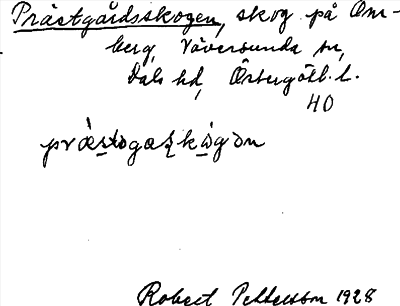 Prästgårdsskogen, skog på Om-
berg, Väversunda sn,
Dals hd, Östergötl. l.
40
Robert Pettersson 1928